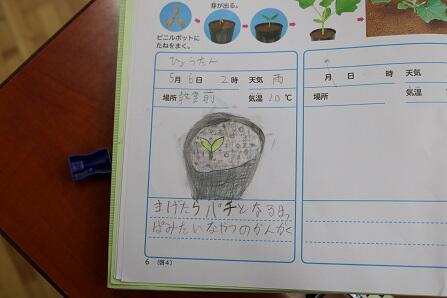 芽が出る。
ビニルポットに
たねをまく。
ひょうたん
5月6日 2時 天気 雨
場所 教室前 気温 20℃
まげたらパチとなるはっ
ぱみたいなやつのかんかく
6 (啓4)
月 日 時 天気
場所 気温 ℃